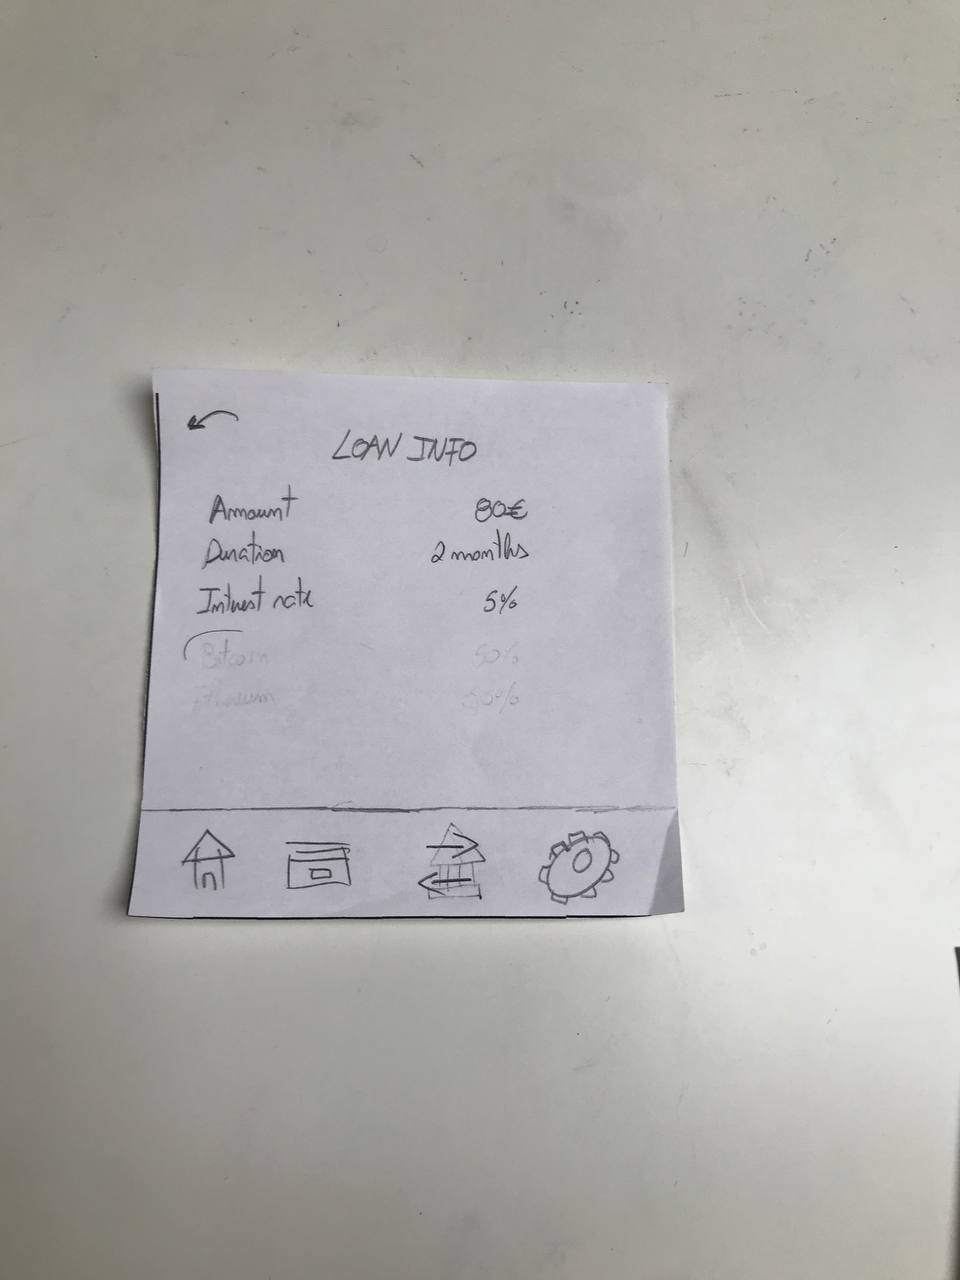 LOAN INFO
Amount 80€
Duration 2 months
Interest rate 5%
Bitcoin 50%
50%